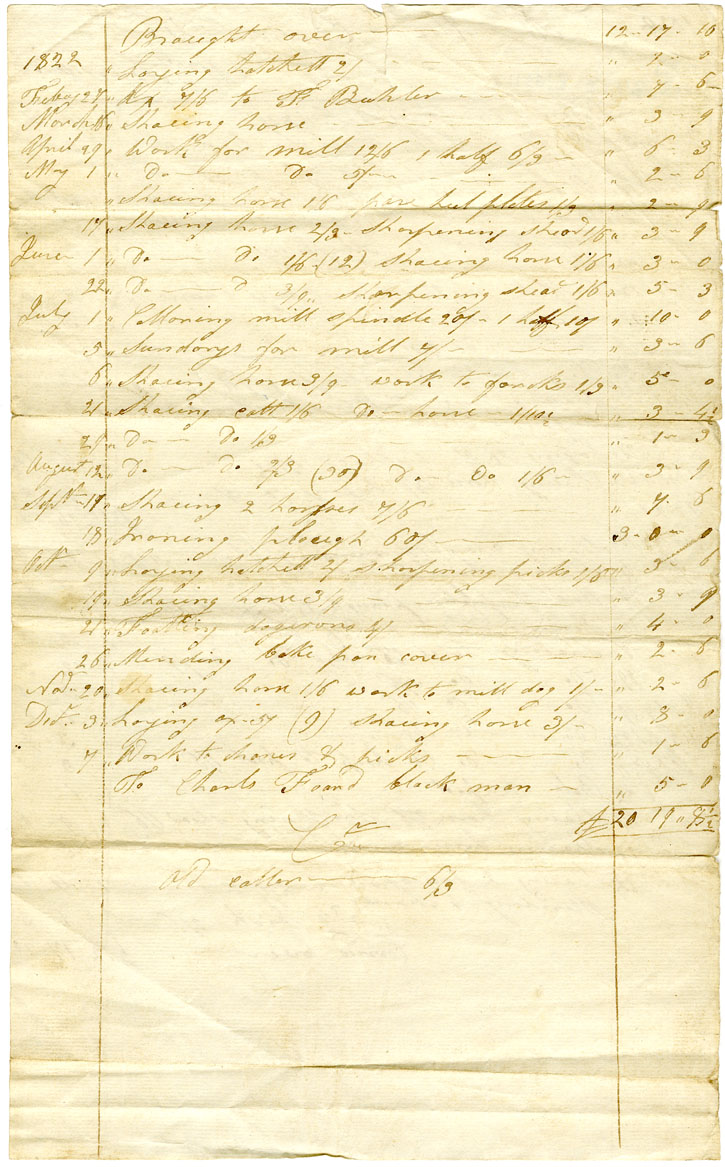 Braught over — 12 - 17 - 10
1822 " Laying hatchett 2/ " 2 - 0
Febay 27 " 7/6 to Buhler — " 7 - 6
March 16 " Shaeing horse — " 3 - 9
April 29 " Work for mill 12/6 1 half 6/3 — " 6 - 3
May 1 " Do — Do 5/— " 2 - 6
" Shaeing horse 1/6 pare heel plates 1/3 " 2 - 9
17 " Shaeing horse 2/3 - sharpening shear 1/6 " 3 - 9
June 1 " Do — Do 1/6 - (12) shaeing horse 1/6 " 3 - 0
22 " Do — D 3/9 " sharpening shear 1/6 " 5 - 3
July 1 " Colloring mill spindle 20/ - 1 half 10/ " 10 - 0
5 " Sundorys for mill — " 3 - 6
6 " Shaeing horse 3/9 work to forcks 1/3 " 5 - 0
21 " Shaeing colt 1/6 Do — horse — 1/10½ " 3 - 4½
29 " Do — Do 1/3 " 1 - 3
August 12 " Do — Do 2/3 (30) Do Do 1/6 — " 3 - 9
Sepr 17 " Shaeing 2 horses 7/6 — " 7 - 6
18 " Ironing plough 60/ — 3 - 0 - 0
Octr 9 " Laying hatchett 2/ sharpening picks 1/6 " 3 - 6
19 " Shaeing horse 3/9 — " 3 - 9
21 " Footting dogirons 4/ — " 4 - 0
26 " Mending bake pan cover — " 2 - 6
Novr 20 " Shaeing horse 1/6 work to mill dog 1/- " 2 - 6
Decr 3 " Laying ax - 5/ (9) shaeing horse 3/- " 8 - 0
7 " Work to & picks — " 1 - 6
To Charls Foard black man — " 5 - 0
20 19 " 8½
Cr
Old — 6/3